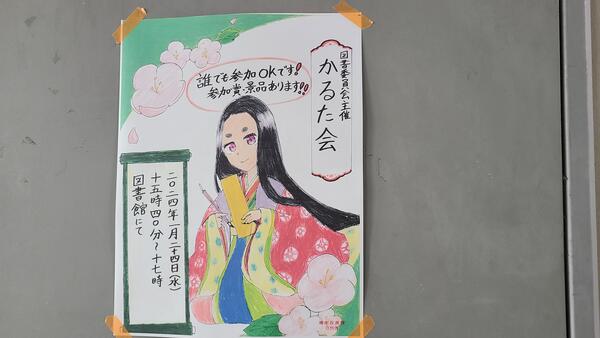 図書委員会主催
かるた会
誰でも参加OKです!
参加賞・景品あります!!
二〇二四年一月二十四日(水)
十五時四〇分〜十七時
図書館にて